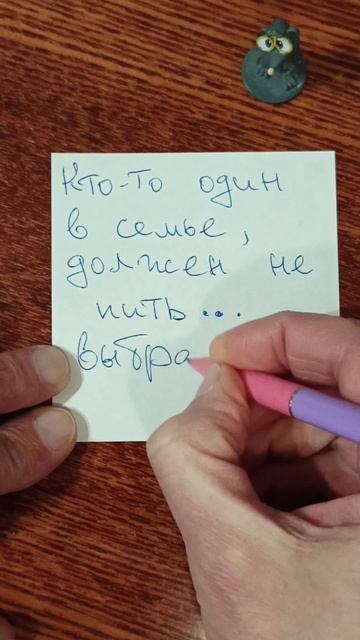 Кто-то один
в семье,
должен не
пить...
выбра